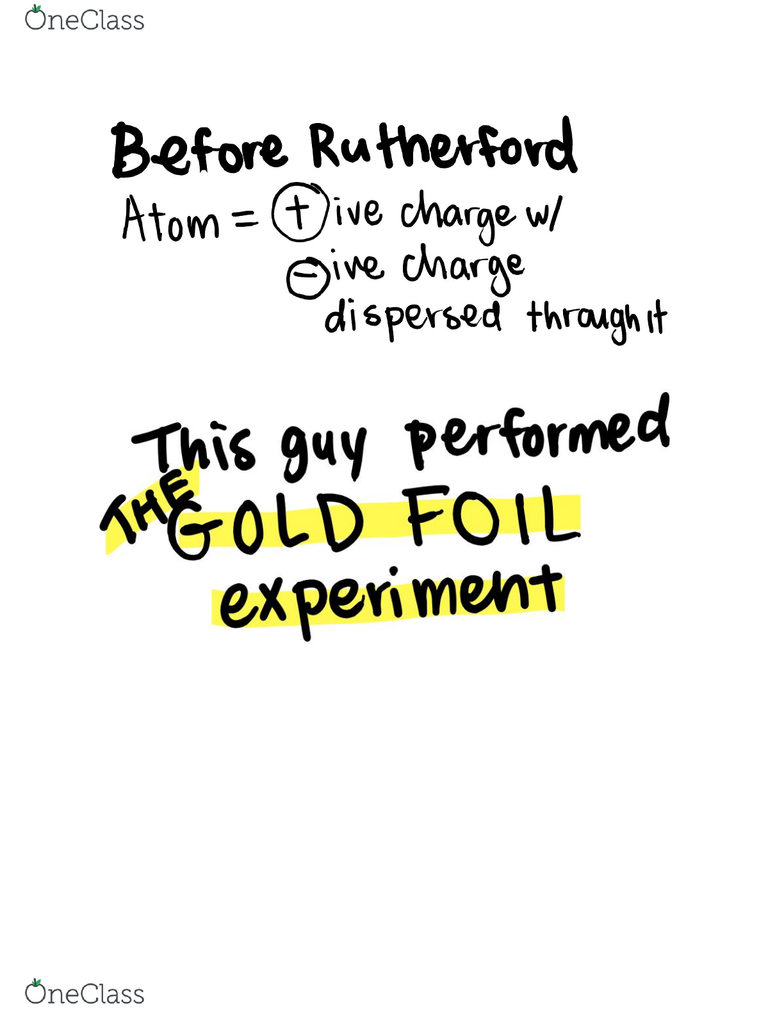 OneClass
Before Rutherford
Atom = ⊕ive charge w/
⊖ive charge
dispersed through it
This guy performed
THE
GOLD FOIL
experiment
OneClass